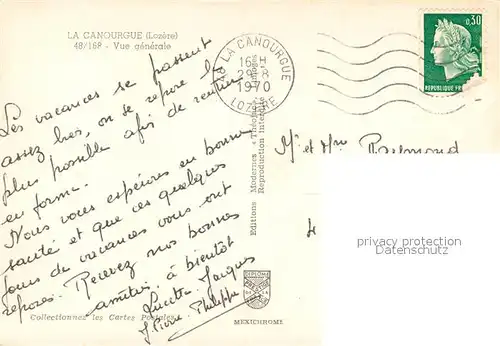 LA CANOURGUE (Lozère)
48/168 - Vue générale
Les vacances se passent
assez bien, on se repose le
plus possible afin de rentrer
en forme.
Nous vous espérons en bonne
santé et que ces quelques
jours de vacances vous ont
reposés. Recevez nos bonnes
amitiés, à bientôt
Lucette Jacques
J Pierre Philippe
Collectionnez les Cartes Postales
48 LA CANOURGUE
16H
29-8
1970
LOZERE
0,30
REPUBLIQUE FR
Editions Modernes « Théojac » Limoges
Reproduction interdite
Mr et Mme Raymond
4
privacy protection
Datenschutz
DIPLOME
MEXICHROME